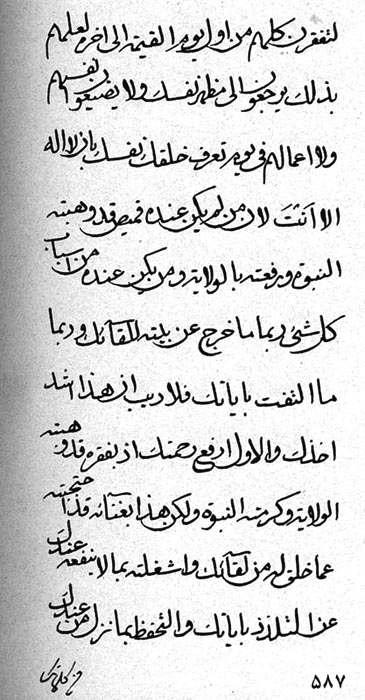 لتفقرن كلهم من اول يوم القيمة الى اخره لعلهم
بذلك يرجعون الى مظهر نفسك ولا يضيعون انفسهم
ولا اعمالهم في يوم تعرف خلقك نفسك بان لا اله
الا انت لان من لم يكن عنده قميص قد وهبته
النبوة ورفعته بالولاية ومن يكن عنده من اسباب
كل شئ ربما ما خرج عن بيته للقائك وربما
ما التفت باياتك فلا ريب ان هذا اشد
اخذك والاول ارفع رحمتك اذ بفقره قد وهبته
الولاية وكرمته النبوة ولكن هذا بغنائه قد احتجبته
عما خلق له من لقائك واشغلته بما لا ينفعه عندك
عن التلذذ باياتك والتحفظ بما نزل من عندك
۵۸۷